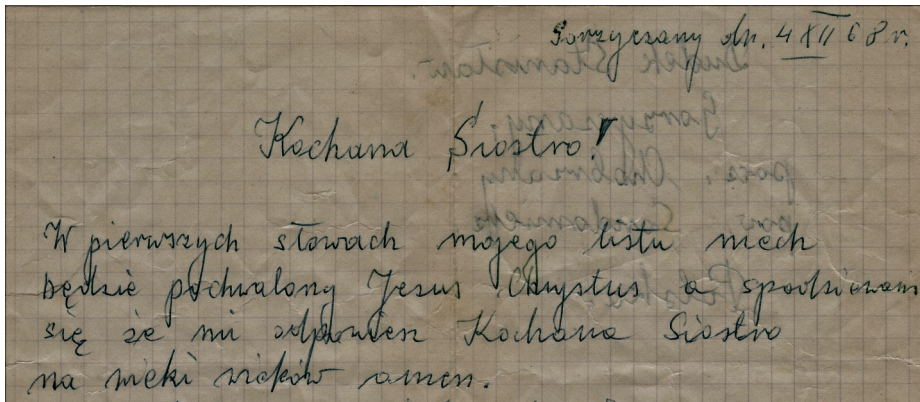 Gorzyczany dn. 4 XII 68 r.
Kochana Siostro!
W pierwszych słowach mojego listu niech
będzie pochwalony Jezus Chrystus a spodziewam
się że mi odpowiesz Kochana Siostro
na wieki wieków amen.